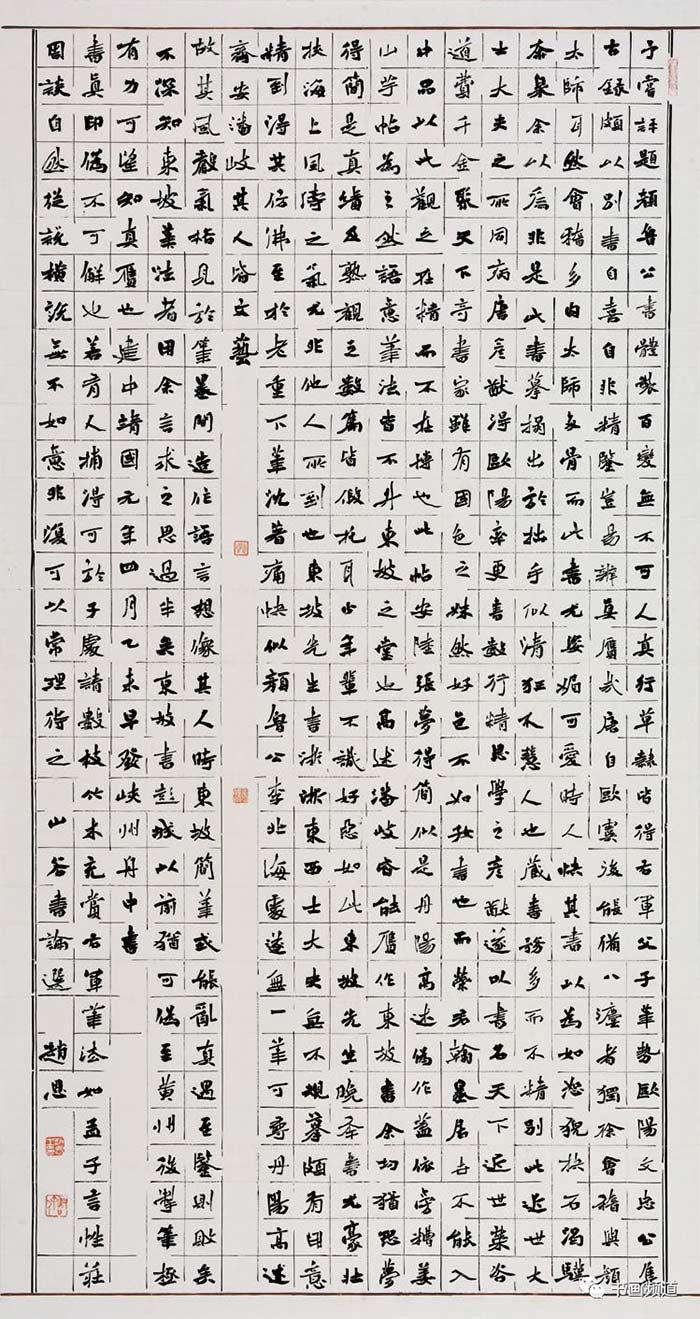 予嘗評題顏魯公書體製百變無不可人真行草隸皆得右軍父子筆勢歐陽文忠公集
古錄頗以別書自喜自非精鑒豈易辨真贗哉唐自歐虞後能備八灋者獨徐會稽與顏
太師耳然會稽多肉太師多骨而此書尤姿媚可愛時人快其書以為如怒猊抉石渴驥
奔泉余以為非是此書摹搨出於拙手似清狂不慧人也藏書務多而不精別此近世大
士大夫之所同病唐彥猷得歐陽率更書數行精思學之彥猷遂以書名天下近世榮咨
道費千金聚天下奇書家雖有國色之姝然好色不如好書也而榮君翰墨居世不能入
中品以此觀之在精而不在博也此帖安陸張夢得簡似是丹陽高述偽作蓋依傍糟姜
山芋帖為之然語意筆法皆不升東坡之堂也高述潘岐皆能贗作東坡書余初猶恐夢
得簡是真蹟及熟觀之數篇皆假托耳少年輩不識好惡如此東坡先生晚年書尤豪壯
挾海上風濤之氣尤非他人所到也東坡先生書浙東西士大夫無不規摹頗有用意
精到得其仿佛至於老重下筆沈著痛快似顏魯公李北海處遂無一筆可尋丹陽高述
齊安潘岐其人皆文藝
故其風聲氣格見於筆墨間造作語言想像其人時東坡簡筆或能亂真遇至鑒則敗矣
不深知東坡筆法者用余言求之思過半矣東坡書彭城以前猶可偽至黃州後掣筆極
有力可望知真贗也建中靖國元年四月乙未早發峽州舟中書
書真印偽不可解也若有人捕得可於予處請數枝竹木充賞右軍筆法如孟子言性莊
周談自然從說橫說無不如意非復可以常理待之 山谷書論選 趙思
书画频道